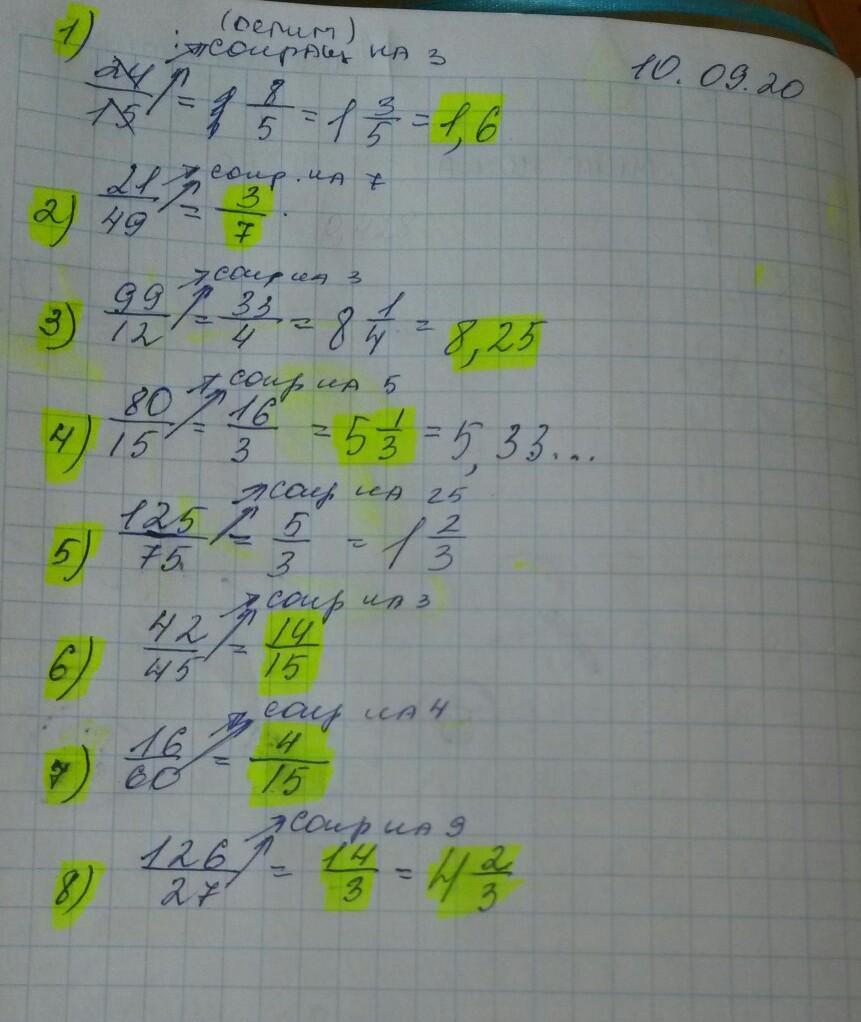 10.09.20
1) (делим)
: → сокращ на 3
24/15 = 1 8/5 = 1 3/5 = 1,6
→ сокр. на 7
2) 21/49 = 3/7.
→ сокр на 3
3) 99/12 = 33/4 = 8 1/4 = 8,25
→ сокр на 5
4) 80/15 = 16/3 = 5 1/3 = 5,33...
→ сокр на 25
5) 125/75 = 5/3 = 1 2/3
→ сокр на 3
6) 42/45 = 14/15
→ сокр на 4
7) 16/60 = 4/15
→ сокр на 9
8) 126/27 = 14/3 = 4 2/3